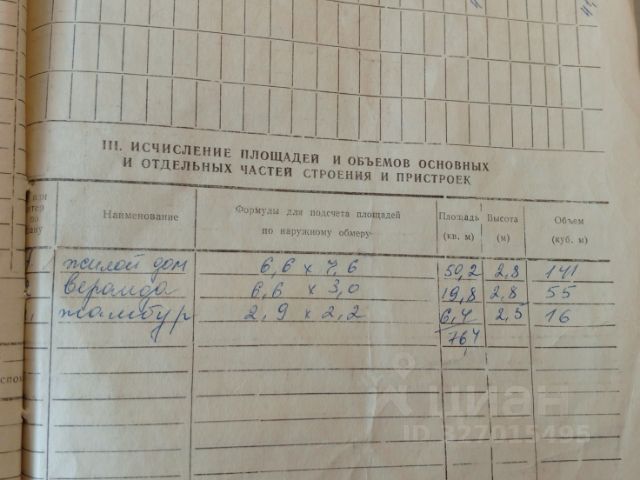 III. ИСЧИСЛЕНИЕ ПЛОЩАДЕЙ И ОБЪЕМОВ ОСНОВНЫХ
И ОТДЕЛЬНЫХ ЧАСТЕЙ СТРОЕНИЯ И ПРИСТРОЕК
Наименование Формулы для подсчета площадей по наружному обмеру Площадь (кв. м) Высота (м) Объем (куб. м)
жилой дом 6,6 х 7,6 50,2 2,8 141
веранда 6,6 х 3,0 19,8 2,8 55
тамбур 2,9 х 2,2 6,4 2,5 16
76,4
циан
ID 327015495